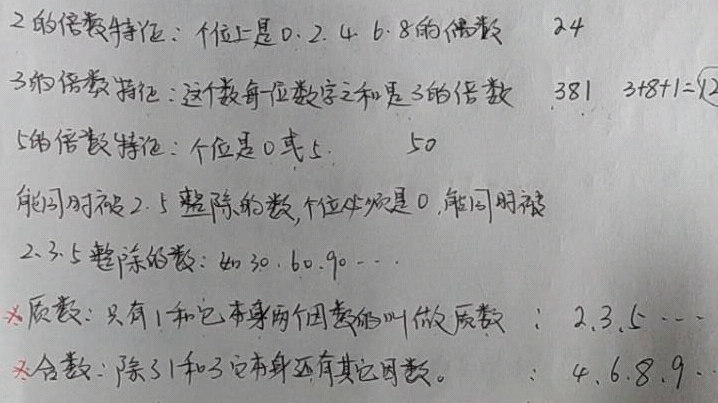 2的倍数特征：个位上是0.2.4.6.8的偶数 24
3的倍数特征：这个数每一位数字之和是3的倍数 381 3+8+1=12
5的倍数特征：个位是0或5. 50
能同时被2.5整除的数,个位必须是0,能同时被
2.3.5整除的数：如30.60.90----
※质数：只有1和它本身两个因数的叫做质数：2.3.5---
※合数：除了1和了它本身还有其它因数。：4.6.8.9--